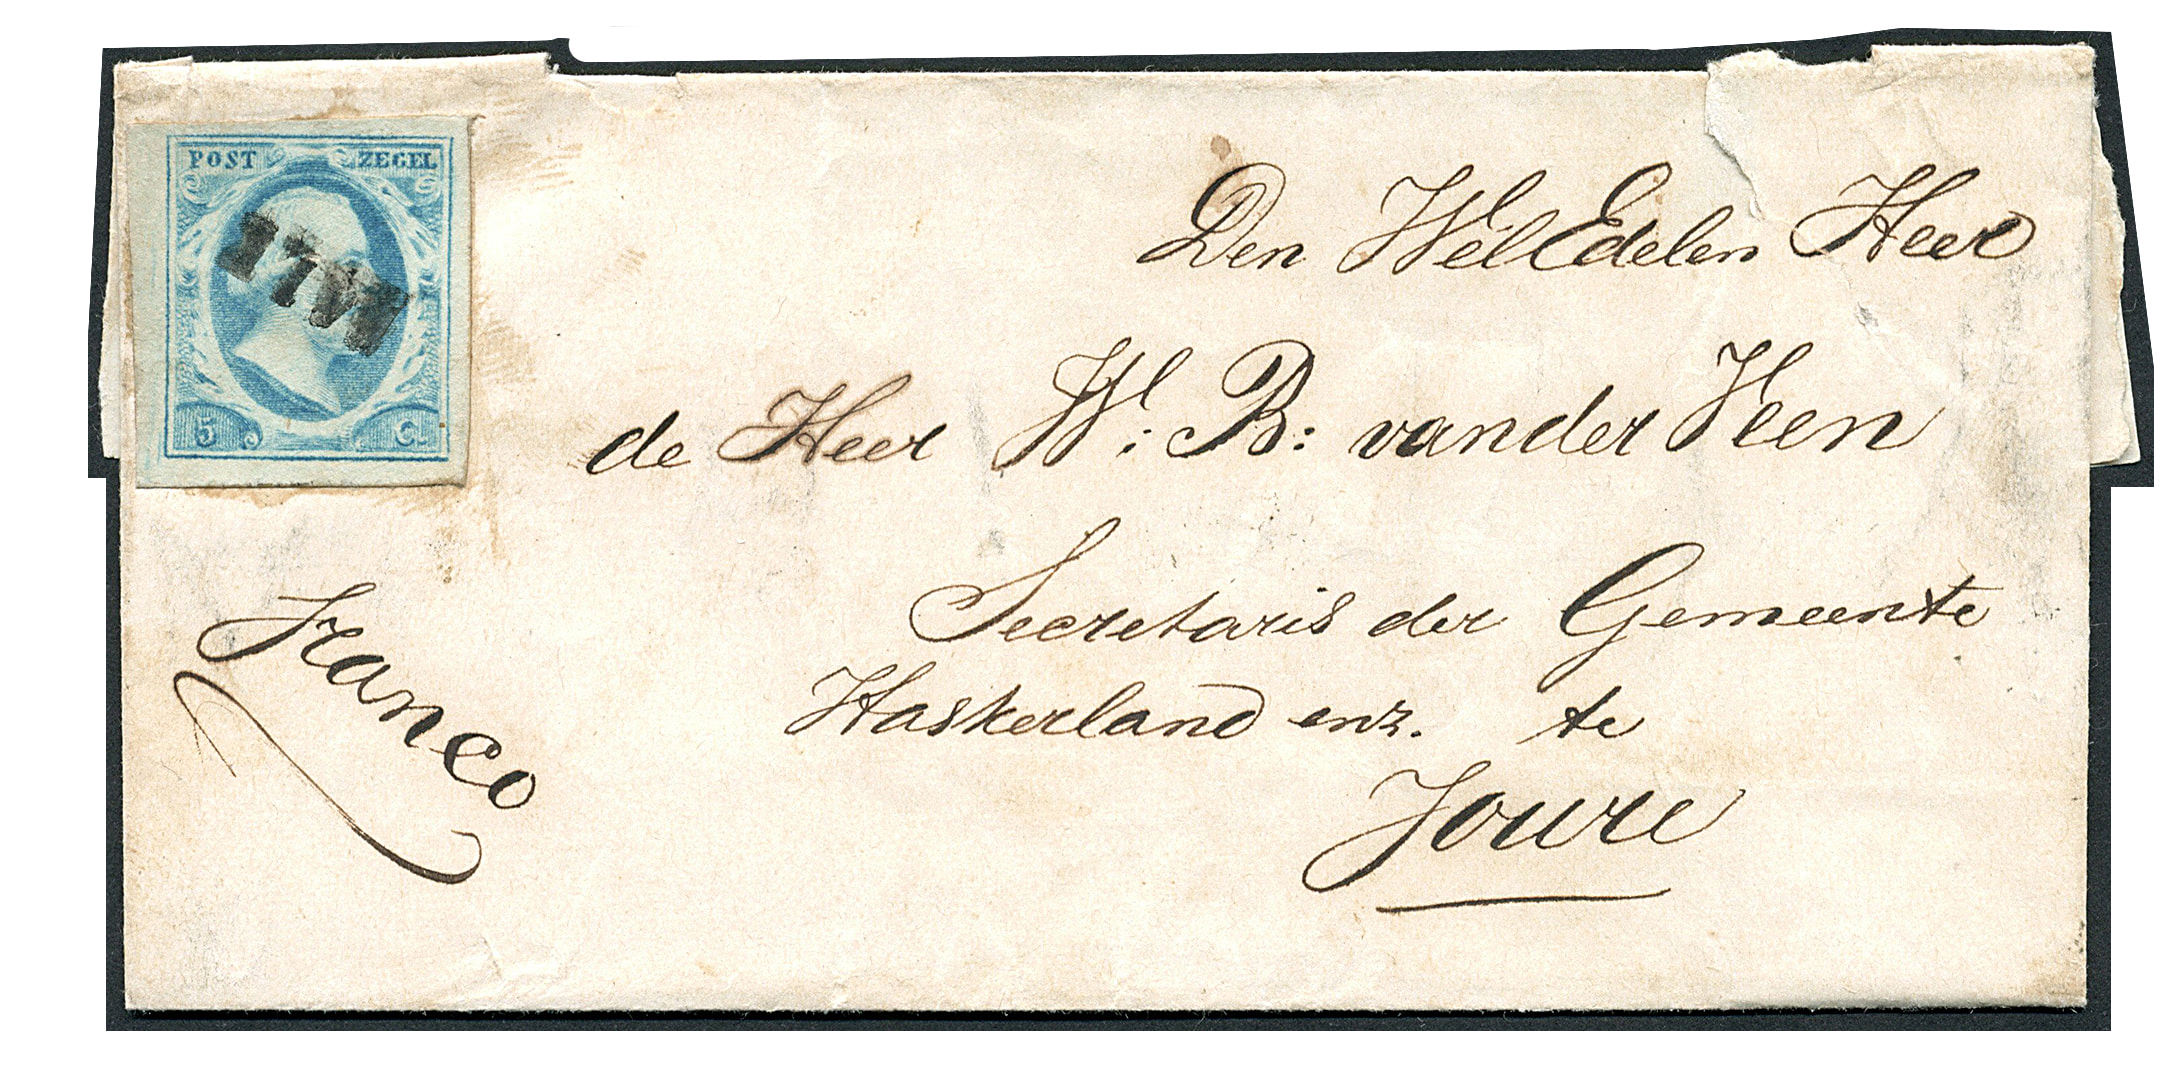 POST ZEGEL
5 Ct.
Den WelEdelen Heer
de Heer W: B: van der Veen
Secretaris der Gemeente
Haskerland enz. te
Joure
Franco